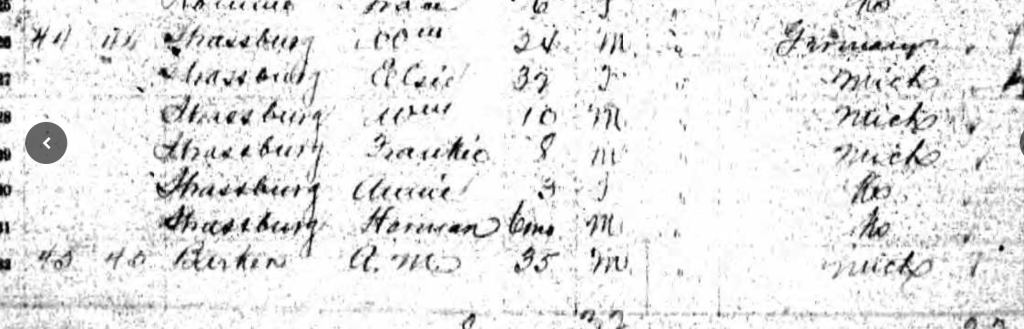 44 44 Strassburg Wm 34 M " Germany
Strassburg Elsie 32 F " Mich
28 Strassburg Wm 10 M " Mich
Strassburg Frankie 8 M " Mich
Strassburg Annie 3 F Ks
Strassburg Herman 6mo M " Ks
45 45 Berkin A. M. 35 M " Mich